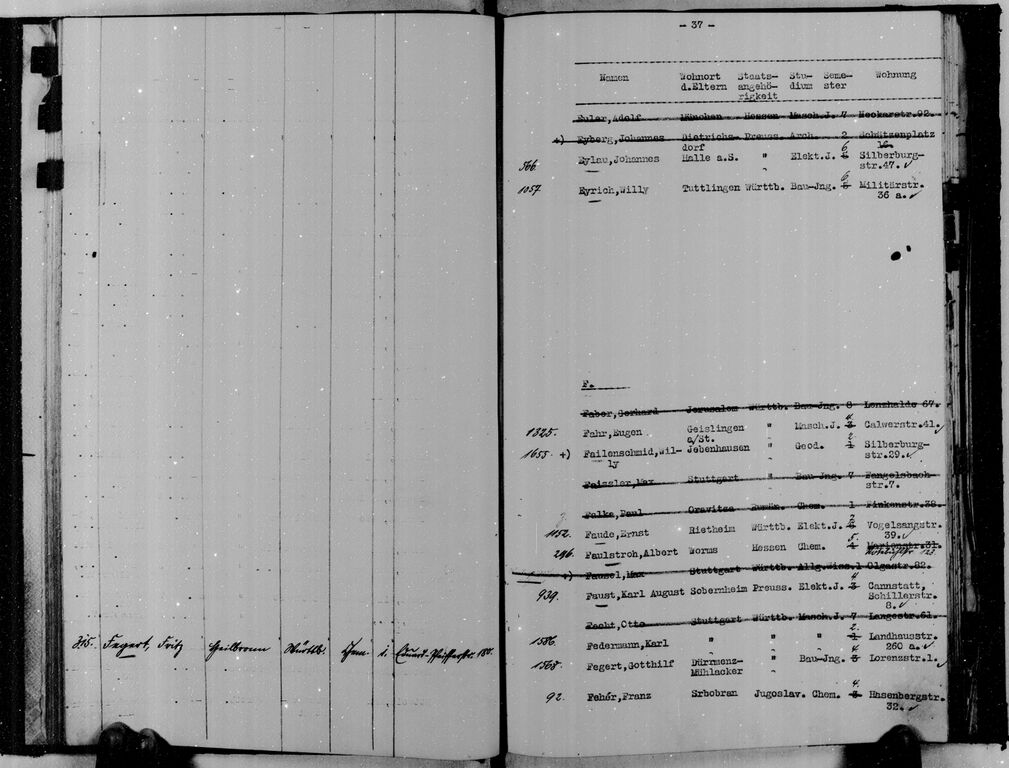 Fegert, Fritz Heilbronn Württb. Chem. 1.
- 37 -
Namen Wohnort Staats- Stu- Seme- Wohnung
d.Eltern angehö- dium ster
rigkeit
Euler,Adolf München Hessen Masch.J. 7 Neckarstr.92.
+) Eyberg,Johannes Dietrichs- Preuss. Arch. 2 Schützenplatz
dorf 6 16.
566. Eylau,Johannes Halle a.S. " Elekt.J. 5 Silberburg-
str.47.
1057. Eyrich,Willy Tuttlingen Württb. Bau-Jng. 6 5 Militärstr.
36 a.
F.
Faber,Gerhard Jerusalem Württb. Bau-Jng. 8 Lenzhalde 67.
1325. Fahr,Eugen Geislingen " Masch.J. 4 3 Calwerstr.41.
a/St.
1655. +) Failenschmid,Wil- Jebenhausen " Geod. 2 1 Silberburg-
ly str.29.
Faissler,Max Stuttgart " Bau-Jng. 7 Fangelsbach
str.7.
Falka,Paul Oravitza Rumän. Chem. 1 Finkenstr.38.
1152. Faude,Ernst Rietheim Württb. Elekt.J. Vogelsangstr.
39.
246. Faulstroh,Albert Worms Hessen Chem. 5. 4 Marienstr.31.
+) Fausel,Max Stuttgart Württb. Allg.Wiss.1 Olgastr.82.
939. Faust,Karl August Sobernheim Preuss. Elekt.J. 4 3 Cannstatt,
Schillerstr.
8.
Fecht,Otto Stuttgart Württb. Masch.J. 7 Langestr.61.
1586. Federmann,Karl " " " 2 1 Landhausstr.
260 a.
1568. Fegert,Gotthilf Dürrmenz- " Bau-Jng. 4 3 Lorenzstr.1.
Mühlacker
92. Fehér,Franz Srbobran Jugoslav. Chem. 4. 3 Hasenbergstr.
32.